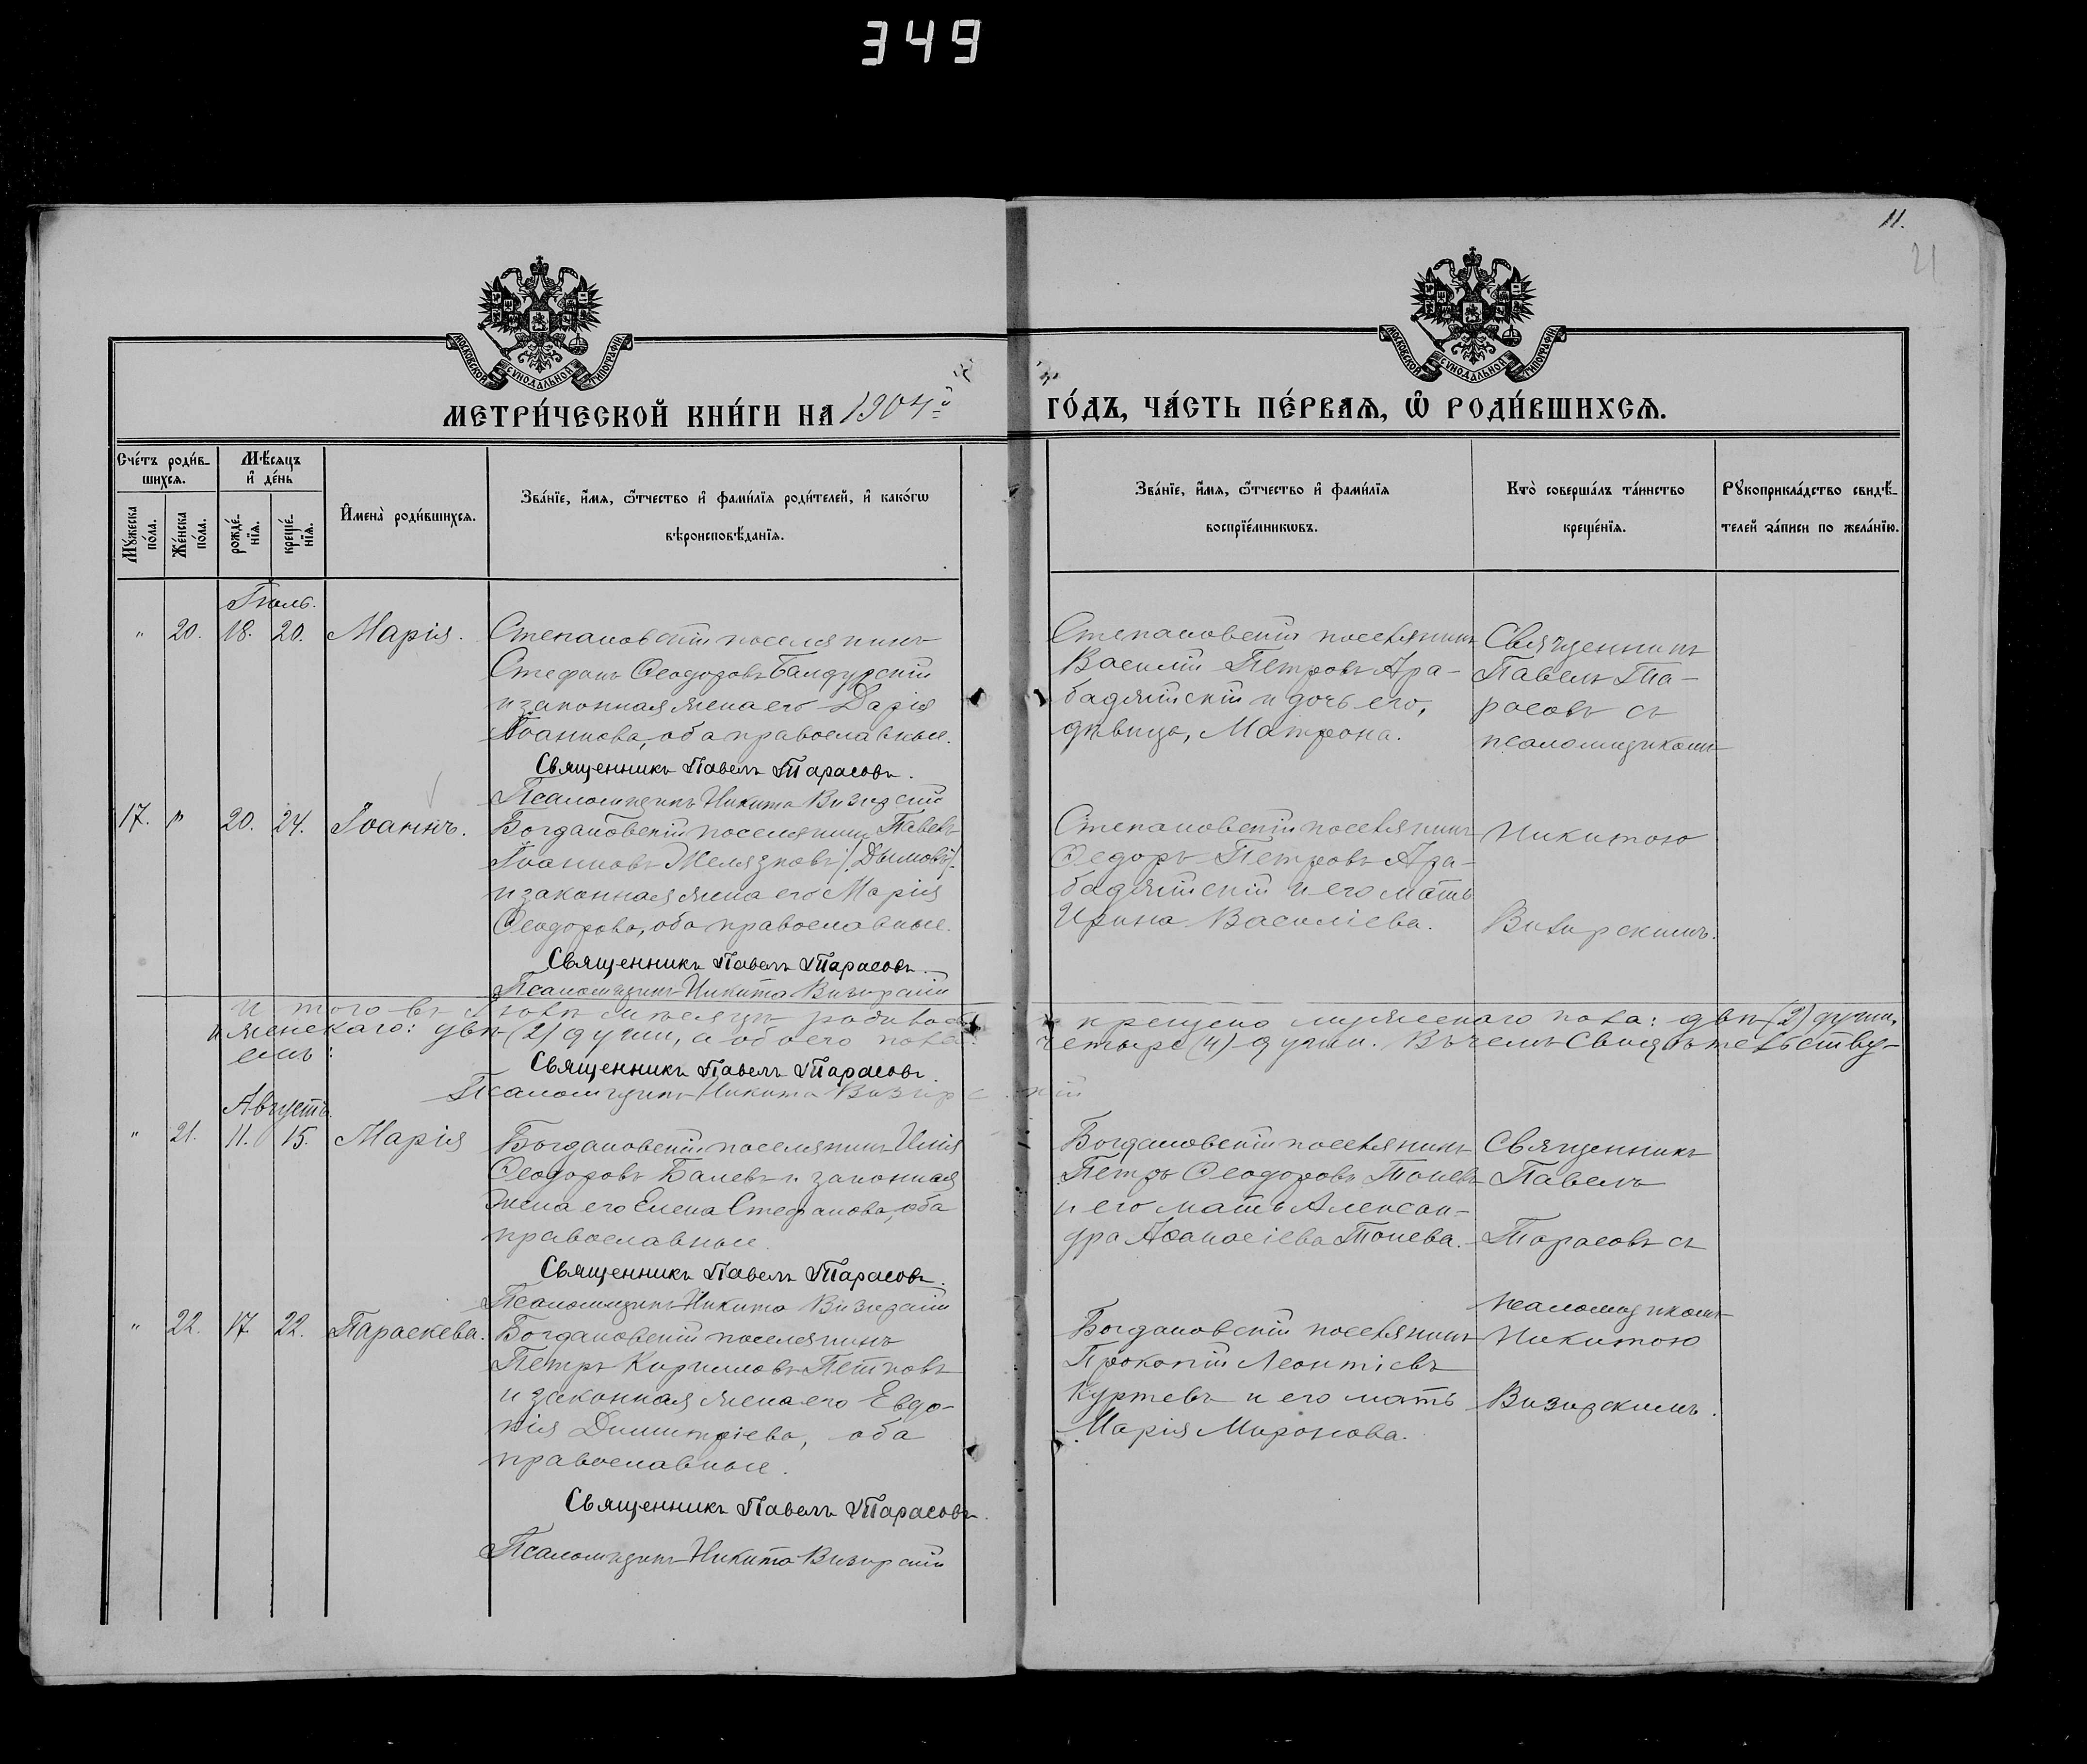 349
11.
21
МОСКОВСКОЙ СѴНОДАЛЬНОЙ ТИПОГРАФІИ
МОСКОВСКОЙ СѴНОДАЛЬНОЙ ТИПОГРАФІИ
МЕТРИ́ЧЕСКОЙ КНИ́ГИ НА 1904й
ГО́ДЪ, ЧА́СТЬ ПЕ́РВАѦ, Ѽ РОДИ́ВШИХСѦ.
Сче́тъ роди́в-
шихсѧ.
Мѣ́сѧцъ
и҆ де́нь
Мꙋ́жеска по́ла.
Же́нска по́ла.
рожде́-нїѧ.
креще́-нїѧ.
И҆мена̀ роди́вшихсѧ.
Зва́нїе, и҆́мѧ, ѻ҆́тчество и҆ фами́лїѧ роди́телей, и҆ како́гѡ
вѣроисповѣ́данїѧ.
Зва́нїе, и҆́мѧ, ѻ҆́тчество и҆ фами́лїѧ
воспрїе́мникѡвъ.
Кто̀ соверша́лъ та́инство
креще́нїѧ.
Рꙋкоприкла́дство свидѣ́-
телей за́писи по жела́нїю.
Іюль.
" 20. 18. 20. Марія.
Степановскій поселянинъ
Стефанъ Ѳеодоровъ Балдурскій
и законная жена его Дарія
Іоаннова, оба православные.
Священникъ Павелъ Тарасовъ.
Псаломщикъ Никита Визирскій
Степановскій поселянинъ
Василій Петровъ Ара-
баджійскій и дочь его,
дѣвица, Матрона.
Священникъ
Павелъ Та-
расовъ съ
псаломщикомъ
17. " 20. 24. Іоаннъ.
Богдановскій поселянинъ Павелъ
Іоанновъ Желязковъ (Дымовъ)
и законная жена его Марія
Ѳеодорова, оба православные.
Священникъ Павелъ Тарасовъ.
Псаломщикъ Никита Визирскій
Степановскій поселянинъ
Ѳедоръ Петровъ Ара-
баджійскій и его мать
Ирина Василіева.
Никитою
Визирскимъ.
Итого въ Іюлѣ мѣсяцѣ родилось и крещено мужескаго пола: двѣ (2) души,
и женскаго: двѣ (2) души, а обоего пола: четыре (4) души. Въ чемъ свидѣтельству-
емъ:
Священникъ Павелъ Тарасовъ.
Псаломщикъ Никита Визирскій
Августъ.
" 21. 11. 15. Марія
Богдановскій поселянинъ Илія
Ѳеодоровъ Балевъ и законная
жена его Елена Стефанова, оба
православные.
Священникъ Павелъ Тарасовъ.
Псаломщикъ Никита Визирскій
Богдановскій поселянинъ
Петръ Ѳеодоровъ Тоневъ
и его мать Алексан-
дра Аѳанасіева Тонева.
Священникъ
Павелъ
Тарасовъ съ
псаломщикомъ
" 22. 17. 22. Параскева.
Богдановскій поселянинъ
Петръ Кирилловъ Петковъ
и законная жена его Евдо-
кія Димитріева, оба
православные.
Священникъ Павелъ Тарасовъ.
Псаломщикъ Никита Визирскій
Богдановскій поселянинъ
Прокопій Леонтіевъ
Куртевъ и его мать
Марія Миронова.
Никитою
Визирскимъ.